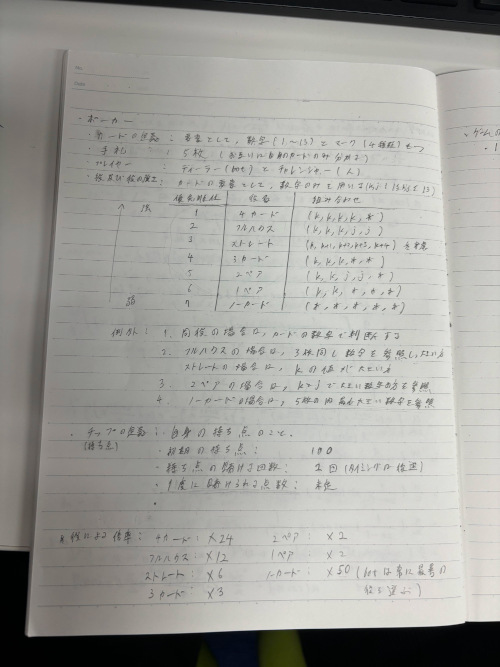 ・ポーカー
・カードの定義 : 要素として, 数字(1〜13)とマーク(4種類)をもつ
・手札 : 5枚 (お互いに自身のカードのみ分かる)
・プレイヤー : ディーラー(bot)とチャレンジャー(人)
・役及び役の優先 : カードの要素として, 数字のみを用いる
優先順位 役名 組み合わせ
↑ 強 1 4カード (k, k, k, k, *)
2 フルハウス (k, k, k, j, j)
3 ストレート (k, k+1, k+2, k+3, k+4)
4 3カード (k, k, k, *, *)
5 2ペア (k, k, j, j, *)
6 1ペア (k, k, *, *, *)
弱 7 ノーカード (*, *, *, *, *)
例外 : 1. 同役の場合は, カードの数字で判断する
2. フルハウスの場合は, 3枚同じ数字を参照し, 大きい方
ストレートの場合は, kの値が大きい方
3. 2ペアの場合は, k>jで大きい数字の方を参照
4. ノーカードの場合は, 5枚の内最も大きい数字を参照
・チップの定義 : ・自身の持ち点のこと.
(持ち点) ・初期の持ち点 : 100
・持ち点の賭ける回数 : 2回 (タイミングは後述)
・1度に賭けられる点数 :
・
役による倍率 : 4カード : ×24 2ペア : ×2
フルハウス : ×12 1ペア : ×2
ストレート : ×6 ノーカード : ×50 (botは常に最善の
3カード : ×3 役を選ぶ)
・ゲームの
・1